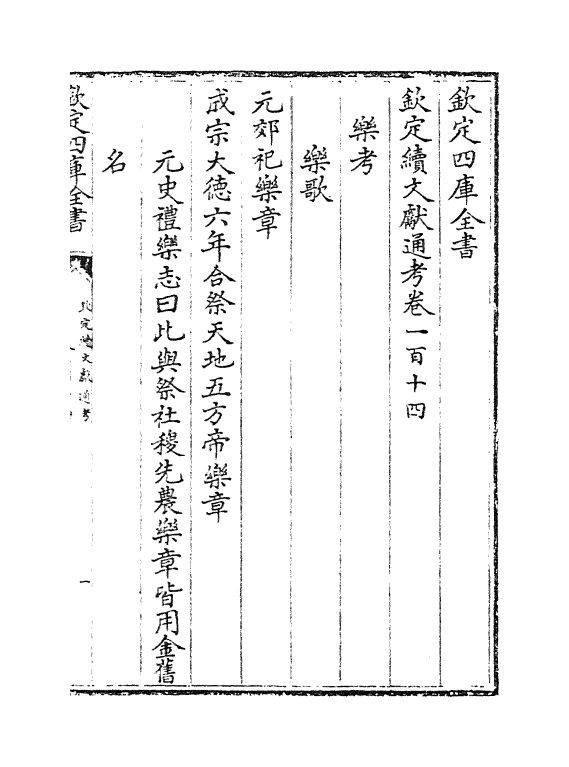 欽定四庫全書
欽定續文獻通考卷一百十四
樂考
樂歌
元郊祀樂章
成宗大德六年合祭天地五方帝樂章
元史禮樂志曰此與祭社稷先農樂章皆用金舊
名
欽定四庫全書
欽定續文獻通考
一